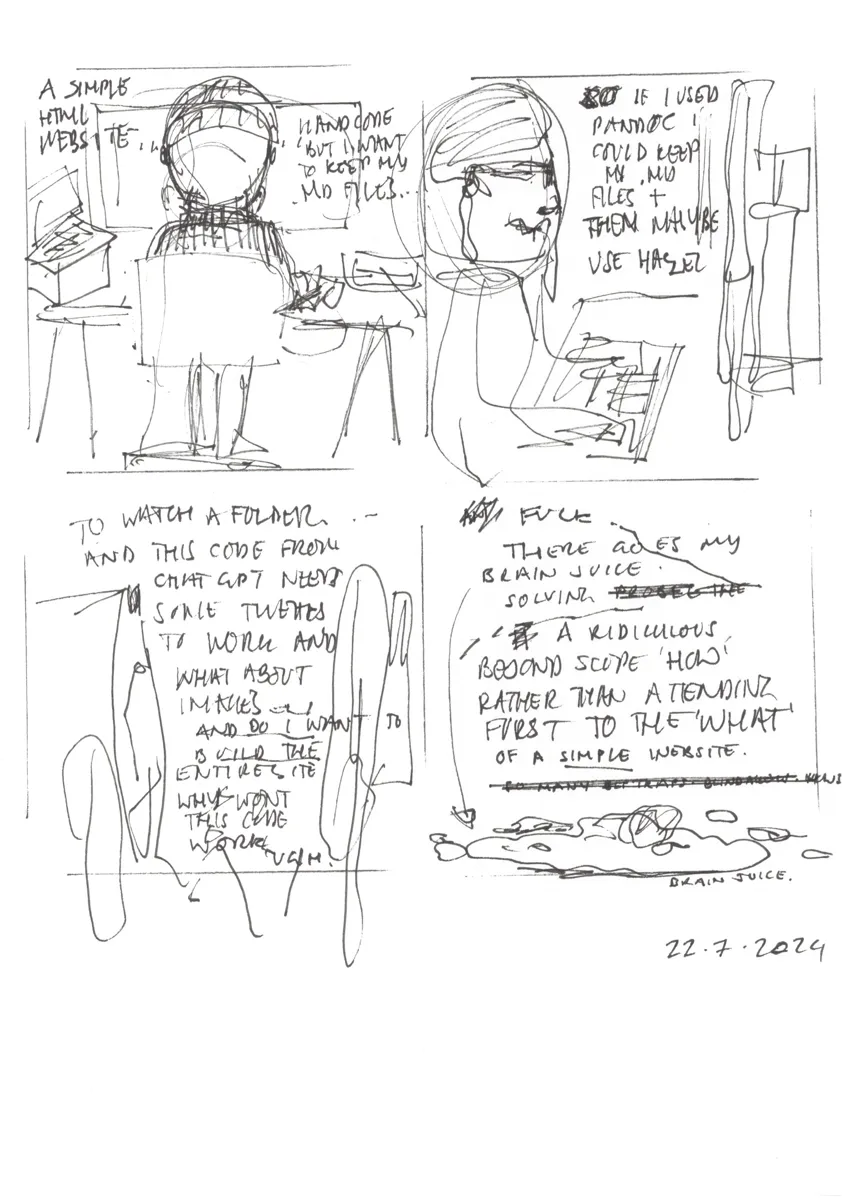 A SIMPLE
HTML
WEBSITE...
HANDCODE
BUT I WANT
TO KEEP MY
.MD FILES...
SO IF I USED
PANDOC I
COULD KEEP
MY .MD
FILES +
THEN MAYBE
USE HAZEL
TO WATCH A FOLDER. . .-
AND THIS CODE FROM
CHAT GPT NEEDS
SOME TWEAKS
TO WORK AND
WHAT ABOUT
IMAGES
AND DO I WANT TO
BUILD THE
ENTIRE SITE
WHY WONT
THIS CODE
WORK
UGH!
FUCK.
THERE GOES MY
BRAIN JUICE.
SOLVING
A RIDICULOUS,
BEYOND SCOPE 'HOW'
RATHER THAN ATTENDING
FIRST TO THE 'WHAT'
OF A SIMPLE WEBSITE.
BRAIN JUICE.
22.7.2024